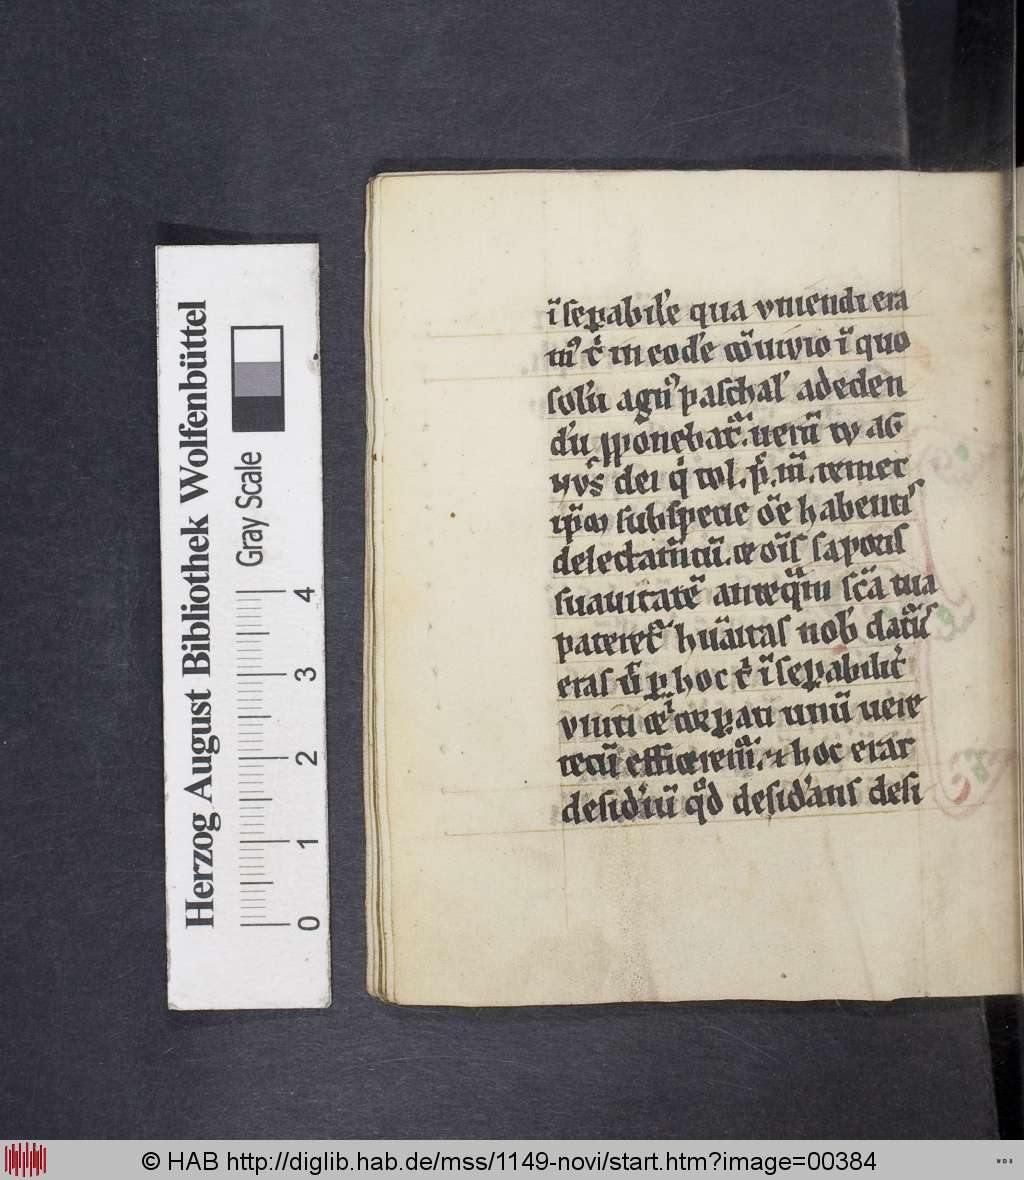 Herzog August Bibliothek Wolfenbüttel
Gray Scale
0 1 2 3 4
ī sep̱abil'e qua vniendi era
in eod'e cōuiuio ī quo
solū agn᷒ paschal' ad eden
d'u p̱ponebat᷑. uerū tu ag
nus dei q̇ tol. p̄. m̄. temet
ip̄m sub specie ōe habentis
delectam̄tū. ōīs saporis
suauitatē anteq̄m sc̄a tua
huāitas nob' datur᷒
eras ī sep̱abilit᷑
viuti corp̱ati unū uere
tecū efficerem᷒. & hoc erat
desid'iū q̊d desid'ans desi
© HAB http://diglib.hab.de/mss/1149-novi/start.htm?image=00384